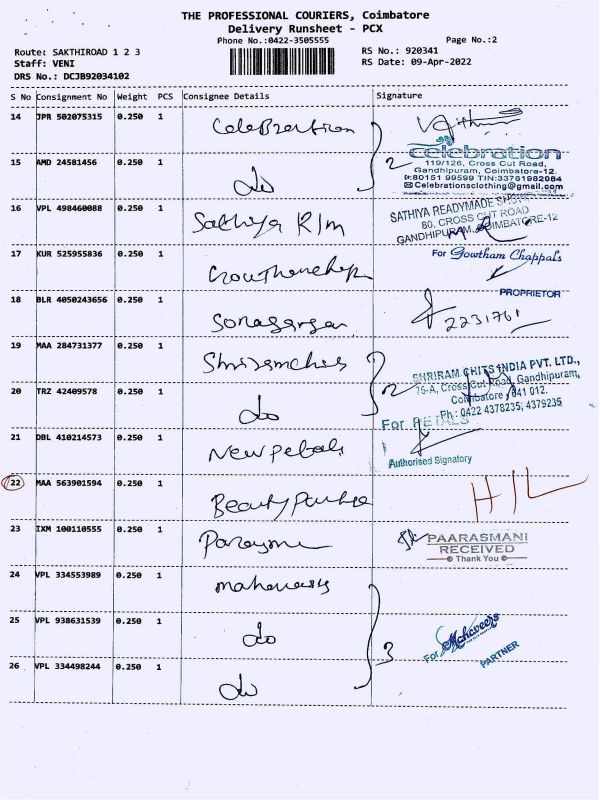 THE PROFESSIONAL COURIERS, Coimbatore
Delivery Runsheet - PCX
Phone No.:0422-3505555 Page No.:2
Route: SAKTHIROAD 1 2 3 RS No.: 920341
Staff: VENI RS Date: 09-Apr-2022
DRS No.: DCJB92034102
S No Consignment No Weight PCS Consignee Details Signature
14 JPR 502075315 0.250 1
celebration
119/126, Cross Cut Road,
Gandhipuram, Coimbatore-12.
Celebrationsclothing@gmail.com
15 AMD 24581456 0.250 1 do 2
16 VPL 498460088 0.250 1 Sathiya R/m
SATHIYA READYMADE
80, CROSS CUT ROAD
GANDHIPURAM, COIMBATORE-12
17 KUR 525955836 0.250 1
For Gowtham Chappals
PROPRIETOR
18 BLR 4050243656 0.250 1 2231761
19 MAA 284731377 0.250 1
SHRIRAM CHITS INDIA PVT. LTD.,
76-A, Cross Cut Road, Gandhipuram,
Coimbatore, 641 012.
Ph : 0422 4378235, 4379235
20 TRZ 42409578 0.250 1 do 2
For PETALS
Authorised Signatory
21 DBL 410214573 0.250 1 New petals
22 MAA 563901594 0.250 1 Beauty
23 IXM 100110555 0.250 1
PAARASMANI
RECEIVED
Thank You
24 VPL 334553989 0.250 1
25 VPL 938631539 0.250 1 do 3
For Mahaveers
PARTNER
26 VPL 334498244 0.250 1 do